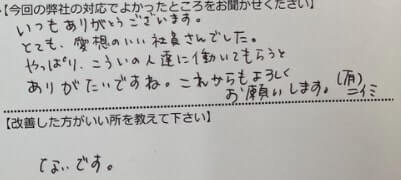 【今回の弊社の対応でよかったところをお聞かせください】
いつもありがとうございます。
とても、愛想のいい社員さんでした。
やっぱり、こういの人達に働いてもらうと
ありがたいですね。これからもよろしく
お願いします。(有)ニイミ
【改善した方がいい所を教えて下さい】
ないです。